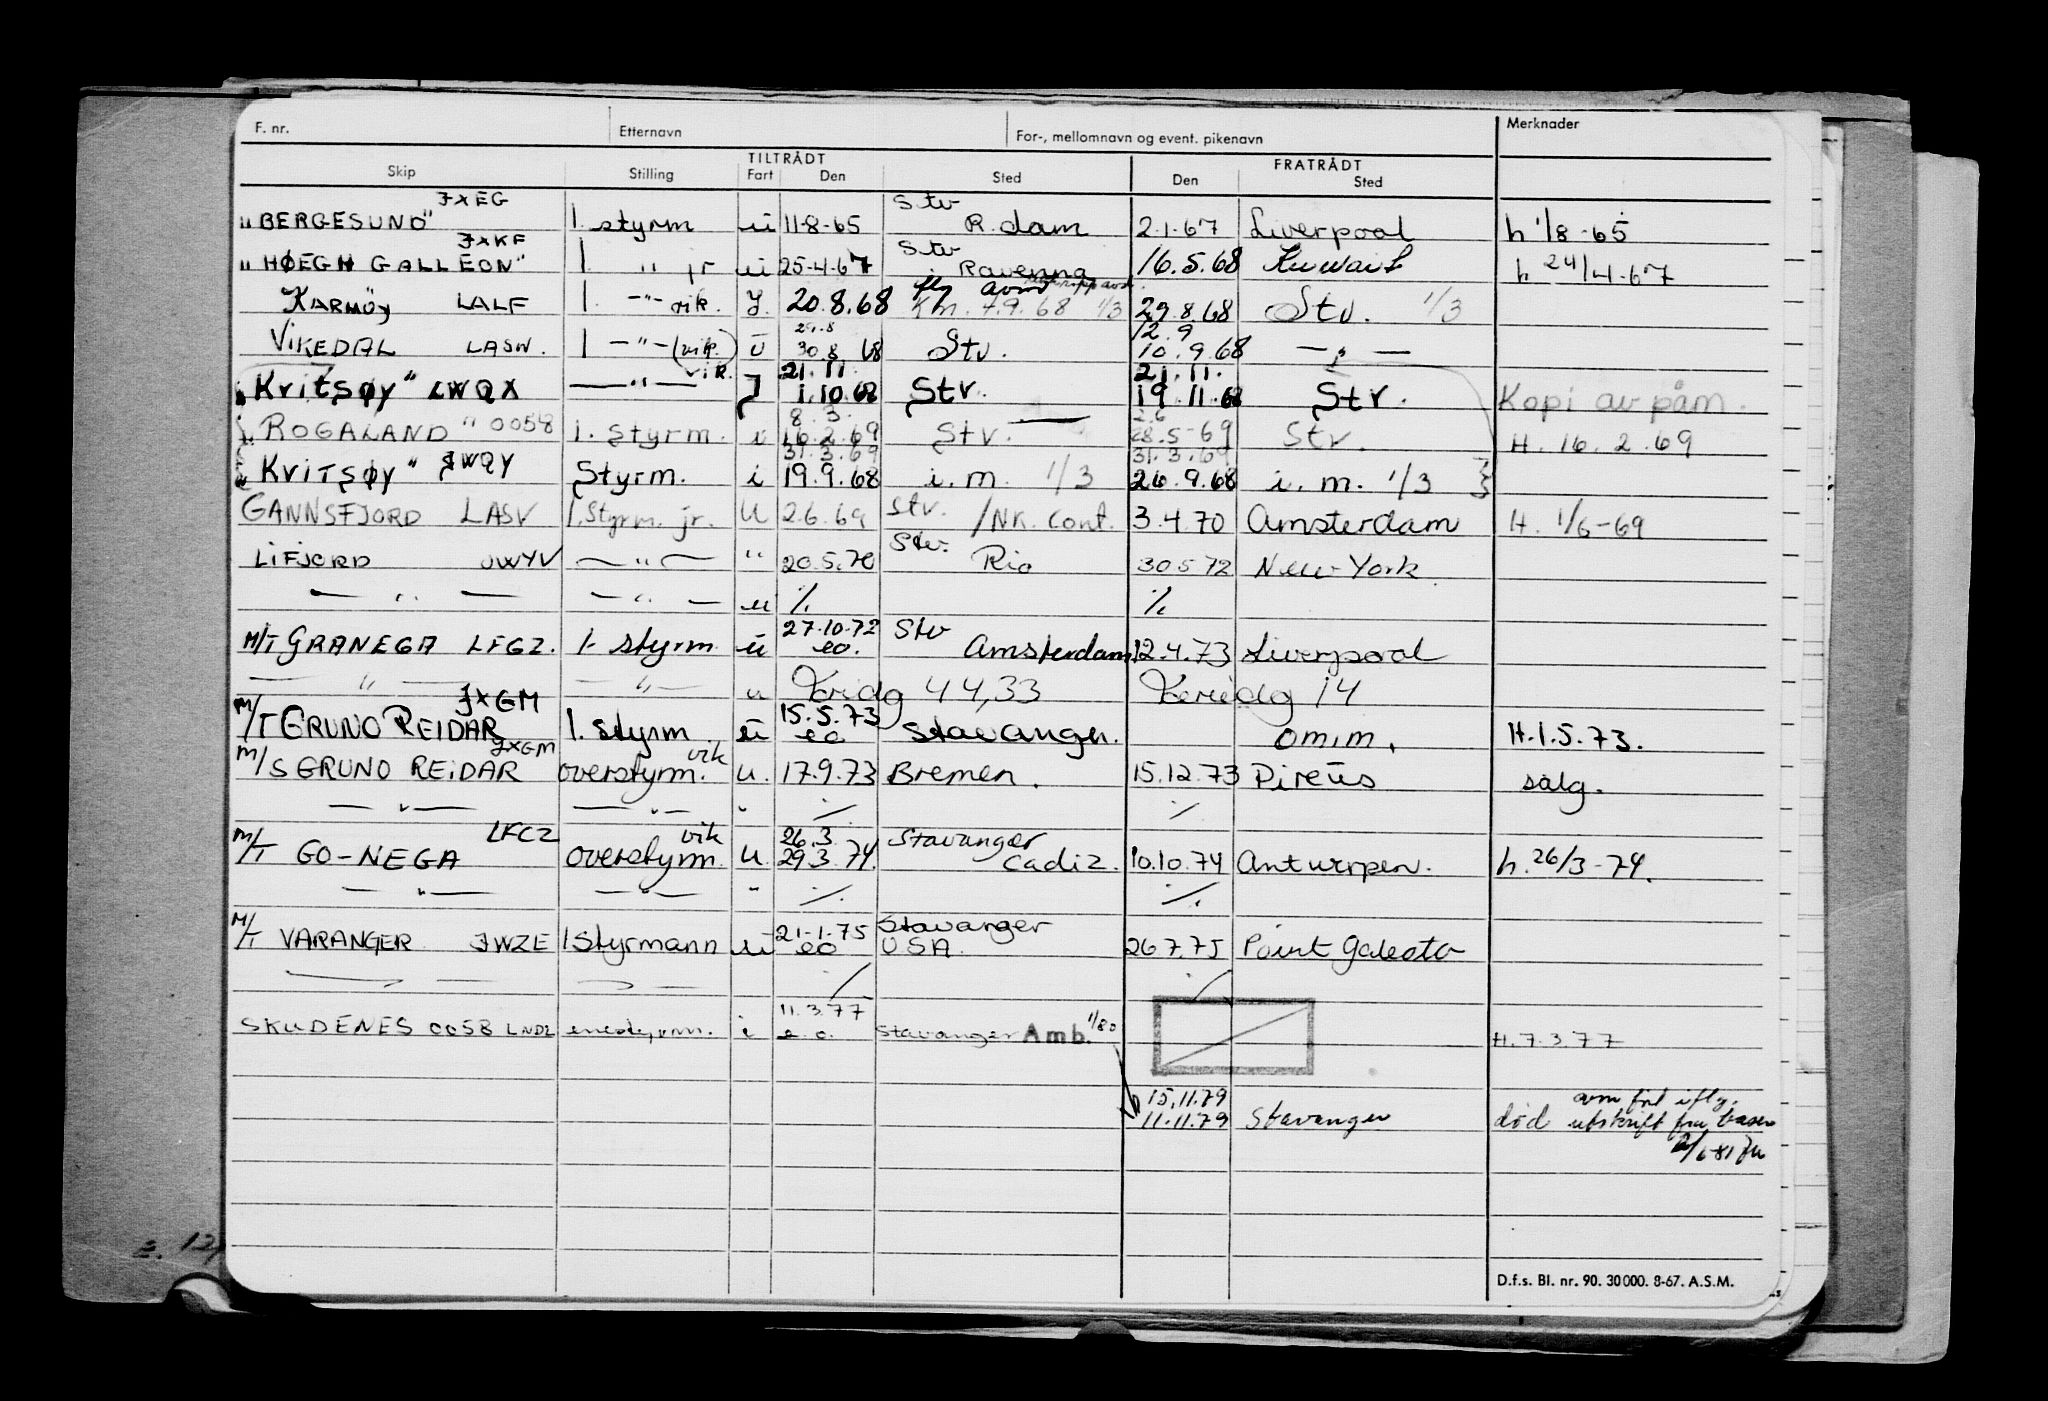 F. nr. Etternavn For-, mellomnavn og event. pikenavn Merknader
TILTRÅDT FRATRÅDT
Skip Stilling Fart Den Sted Den Sted
JXEG Stv
"BERGESUND" 1. styrm ü 11-8-65 R.dam 2.1.67 Liverpool h 1/8-65
JXKF Stv
"HØEGH GALLEON" 1. " jr ü 25-4-67 Ravenna 16.5.68 Kuwait h 24/4-67
KARMØY LALF 1. -"- vik. J. 20.8.68 Kh. 4.9.68 1/3 29.8.68 Stv. 1/3
29.8 12.9
VIKEDAL LASW. 1 -"- (vik.) ü 30.8.68 Stv. 10.9.68 -"-
vik. 21.11. 21.11.
"KVITSØY" LWQX -"- J 1.10.68 Stv. 19.11.68 Stv. Kopi av påm.
8.3. 2.6
"ROGALAND" 0058 1. styrm. i 16.2.69 Stv. 28.5-69 Stv. H. 16.2.69
31.3.69 31.3.69
"KVITSØY" JWQY Styrm. i 19.9.68 i.m. 1/3 26.9.68 i.m. 1/3
GANNSFJORD LASV 1. Styrm. jr. U 2.6.69 Stv. /NK. Cont. 3.4.70 Amsterdam H. 1/6-69
Stv.
LIFJORD JWYV -"- " 20.5.70 Rio 30.5.72 New-York
-"- -"- ü ./. ./.
27.10.72 Stv
M/T GRANEGA LFGZ. 1. styrm. ü eo. Amsterdam 12.4.73 Liverpool
-"- -"- u 44,33 14
JXGM 15.5.73
M/T GRUNO REIDAR 1. styrm ü eo Stavanger. omm. H.1.5.73.
JXGM vik
M/S GRUNO REIDAR overstyrm. u. 17.9.73 Bremen. 15.12.73 Pireüs salg.
-"- -"- " ./. ./.
LFCZ vik 26.3 Stavanger
M/T GO-NEGA overstyrm. u. 29.3.74. Cadiz. 10.10.74 Antwerpen. h. 26/3-74.
-"- -"- " ./. ./.
21-1-75 Stavanger
M/T VARANGER JWZE 1 Styrmann ü eo USA. 26.7.75 Point Galeota
./. ./.
11.3.77
SKUDENES 0058 LNDL enestyrm. i e.o. Stavanger Amb. 1/80 H.7.3.77
15.11.79
11.11.79 Stavanger død utskrift fra basen
D.f.s. Bl. nr. 90. 30000. 8-67. A.S.M.
E. 12